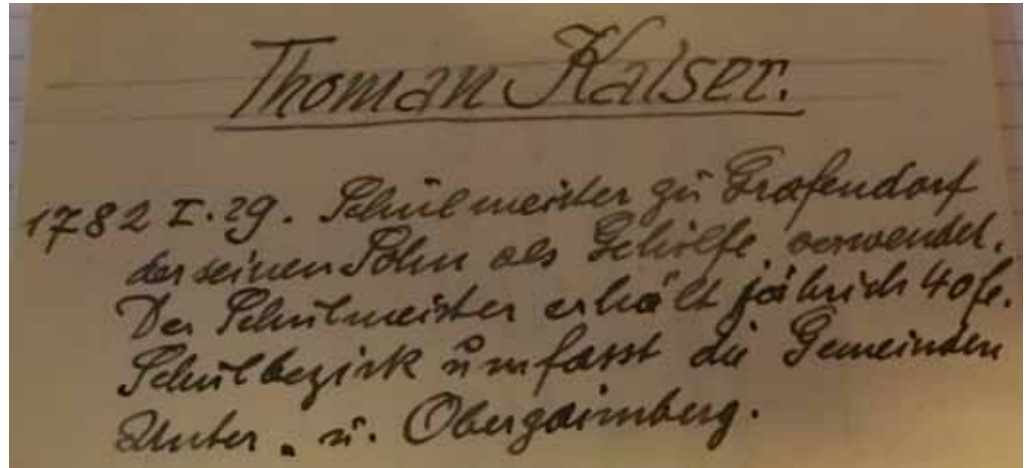 Thoman Kalser.
1782 I. 29. Schulmeister zu Grafendorf
der seinen Sohn als Gehilfe verwendet.
Der Schulmeister erhält jährich 40 fl.
Schulbezirk umfasst die Gemeinden
Unter- u. Obergaimberg.